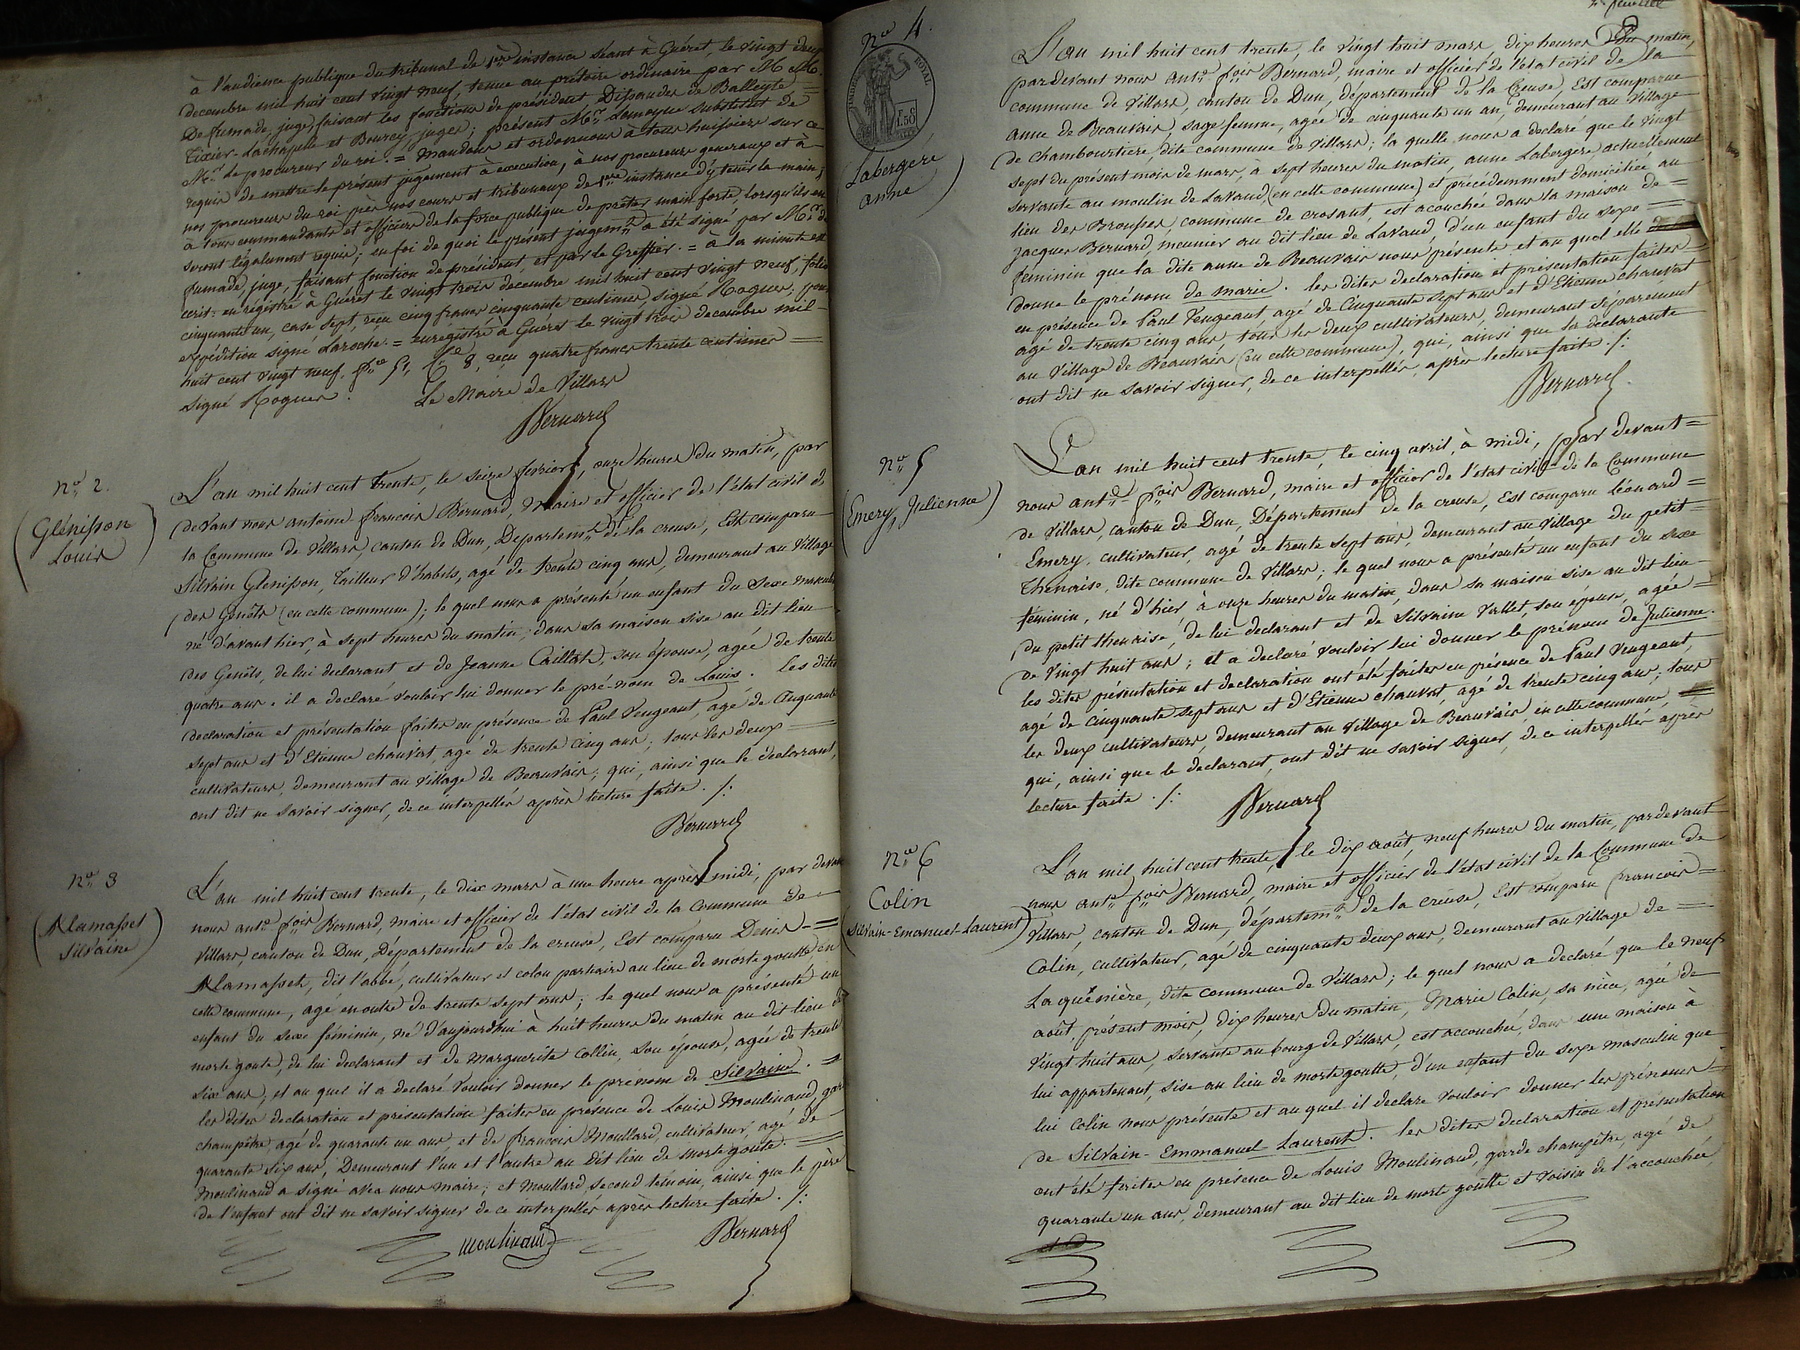 à l'audience publique du tribunal de 1ère instance séant à Guéret, le vingt deux
decembre mil huit cent vingt neuf, tenue au prétoire ordinaire par M M.
Defumade, juge, faisant les fonctions de président, Dissandes de
Tixier-Lachapelle et Bourcy, juges; présent Mr. Lemoyne substitut de
Mr. le procureur du roi. = Mandons et ordonnons à tous huissiers sur ce
requis de mettre le présent jugement à execution, à nos procureurs generaux et à
nos procureurs du roi près nos cours et tribunaux de 1ère instance d'y tenir la main,
à tous commandants et officiers de la force publique de prêter main forte, lorsqu'ils en
seront légalement requis; en foi de quoi le présent jugemt. a été signé par Mr. de
fumade, juge, faisant fonction de président, et par le Greffier. = à la minute est
écrit: enrégistré à Guéret le vingt trois decembre mil huit cent vingt neuf, folio
cinquante un, case sept, reçu cinq francs cinquante centimes, signé Roques; pour
expédition signé Laroche. = enrégistré à Guéret le vingt trois decembre mil
huit cent vingt neuf, 8, reçu quatre francs trente centimes =
signé Roques.
Le Maire de Villars
Bernard
No. 2.
(Glénisson
Louis)
L'an mil huit cent trente, le seize fevrier, onze heures du matin, par
devant nous antoine françois Bernard, Maire et officier de l'état civil de
la Commune de Villars, canton de Dun, Départemt. de la creuse, Est comparu
Silvain Glenisson, tailleur d'habits, agé de trente cinq ans, demeurant au Village
des Genêts (en cette commune); le quel nous a présenté un enfant du Sexe masculin
né d'avant hier, à sept heures du matin, dans sa maison sise au dit lieu
des Genêts, de lui declarant et de Jeanne Caillat, son épouse, agée de trente
quatre ans. il a declaré vouloir lui donner le pré-nom de Louis. Les dites
declaration et présentation faites en présence de Paul Vengeant, agé de cinquante
sept ans et d'Etienne chauvat, agé de trente cinq ans; tous les deux =
cultivateurs, demeurant au village de Beauvais; qui, ainsi que le déclarant,
ont dit ne savoir signer, de ce interpellés après lecture faite. /:
Bernard
No. 3
(Alamasset
Silvaine)
L'an mil huit cent trente, le dix mars à une heure après midi, par devant
nous ante. fçois Bernard, maire et officier de l'état civil de la Commune de
Villars, canton de Dun, Département de la creuse, Est comparu Denis =
Alamasset, dit l'abbé, cultivateur et colon partiaire au lieu de morte goutte en
cette commune, agé en outre de trente sept ans; le quel nous a présenté un
enfant du sexe féminin, né d'aujourdhui à huit heures du matin au dit lieu de
morte goute, de lui declarant et de marguerite Collin, son épouse, agée de trente
six ans, et au quel il a declaré vouloir donner le prénom de Silvaine. =
les dites declaration et présentation faites en présence de Louis Moulinaud, garde
champêtre, agé de quarante un ans et de françois Moullard, cultivateur, agé de
quarante six ans, Demeurant l'un et l'autre au dit lieu de morte goute. =
Moulinaud a signé avec nous maire; et Moullard, second témoin, ainsi que le père
de l'enfant ont dit ne savoir signer de ce interpellés après lecture faite. /:
moulinaud
Bernard
No. 4.
TIMBRE ROYAL
1.50
(Labergere
anne)
L'an mil huit cent trente, le vingt huit mars, dix heures du matin,
pardevant nous ante. fçois Bernard, maire et officier de l'état civil de la
commune de Villars, canton de Dun, département de la Creuse, Est comparue
anne de Beauvais, sage femme, agée de cinquante un an, demeurant au Village
de chambourtière, dite commune de Villars; la quelle nous a declaré que le vingt
sept du présent mois de mars, à sept heures du matin, anne Labergère actuellement
servante au moulin de Lavaud, (en cette commune) et précédemment domiciliée au
lieu des Brousses, commune de crosant, est acouchée dans la maison de =
Jacques Bernard, meunier au dit lieu de Lavaud, d'un enfant du sexe =
féminin que la dite anne de Beauvais nous présente et au quel elle
donne le prénom de marie. les dites declaration et présentation faites
en présence de Paul Vengeant agé de cinquante sept ans et d'Etienne chauvat
agé de trente cinq ans, tous les deux cultivateurs, demeurant séparément
au village de Beauvais (en cette commune), qui, ainsi que la declarante
ont dit ne savoir signer, de ce interpellés, après lecture faite. /:
Bernard
No. 5
(Emery, Julienne)
L'an mil huit cent trente, le cinq avril, à midi, par devant =
nous ante. fçois Bernard, maire et officier de l'état civil de la Commune
de Villars, canton de Dun, Département de la creuse, Est comparu Léonard =
Emery, cultivateur, agé de trente sept ans, demeurant au village du petit
thenaise, dite commune de Villars; le quel nous a présenté un enfant du sexe
féminin, né d'hier à onze heures du matin, dans sa maison sise au dit lieu
du petit thenaise, de lui declarant et de Silvaine Vallet, son epouse, agée =
de vingt huit ans; et a declaré vouloir lui donner le prénom de Julienne.
les dites présentation et declaration ont été faites en présence de Paul Vengeant,
agé de cinquante sept ans et d'Etienne chauvat, agé de trente cinq ans; tous
les deux cultivateurs, demeurant au village de Beauvais, en cette commune,
qui, ainsi que le declarant, ont dit ne savoir signer, de ce interpellés après
lecture faite. /:
Bernard
No. 6
Colin
(Silvain-Emanuel-Laurent)
L'an mil huit cent trente, le dix août, neuf heures du matin, pardevant
nous ante. fçois Bernard, maire et officier de l'état civil de la Commune de
Villars, canton de Dun, départemt. de la creuse, Est comparu françois =
Colin, cultivateur, agé de cinquante deux ans, demeurant au village de =
La quénière, dite commune de Villars; le quel nous a declaré que le neuf
août, présent mois, dix heures du matin, Marie Colin, sa nièce, agée de
vingt huit ans, servante au bourg de Villars, est accouchée, dans une maison à
lui appartenant, sise au lieu de morte goutte, d'un enfant du sexe masculin que
lui Colin nous présente et au quel il declare vouloir donner les prénoms =
de Silvain-Emmanuel-Laurent. les dites declaration et présentation
ont été faites en présence de Louis Moulinaud, garde champêtre, agé de
quarante un ans, demeurant au dit lieu de morte goutte et voisin de l'accouchée